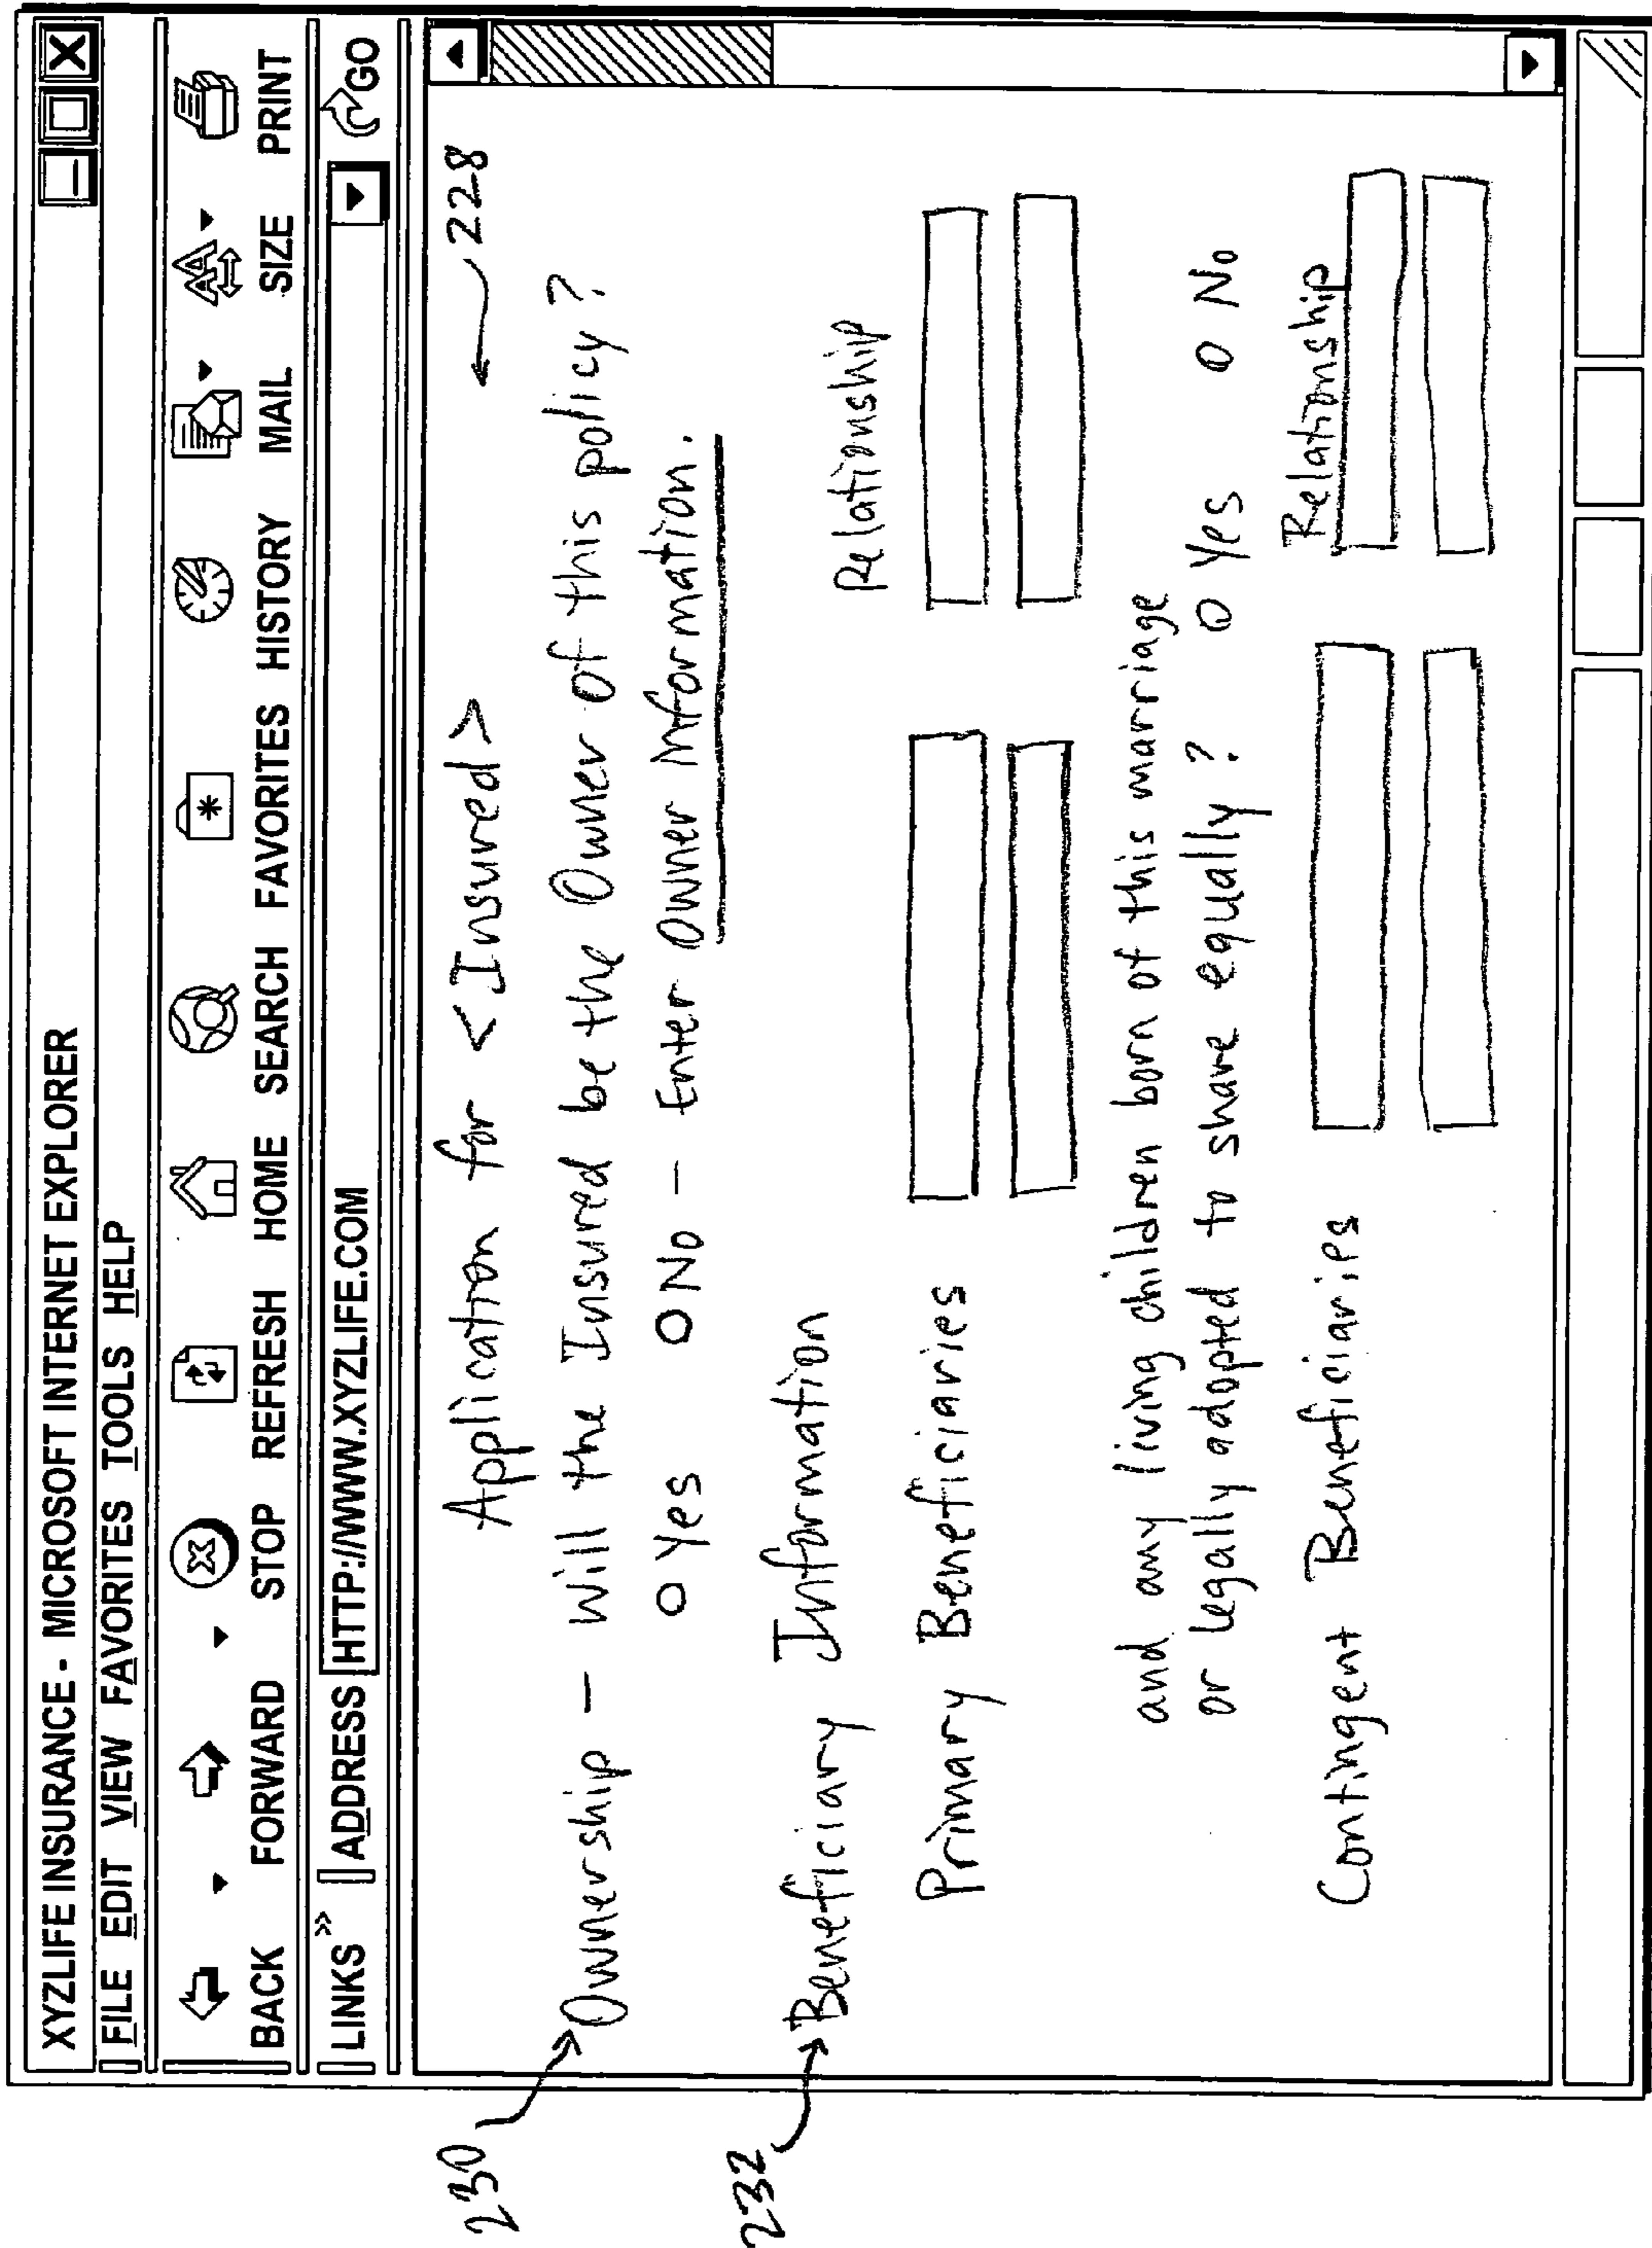 XYZLIFE INSURANCE - MICROSOFT INTERNET EXPLORER
FILE EDIT VIEW FAVORITES TOOLS HELP
BACK FORWARD STOP REFRESH HOME SEARCH FAVORITES HISTORY MAIL SIZE PRINT
LINKS » ADDRESS HTTP://WWW.XYZLIFE.COM GO
Application for <Insured> 228
230 Ownership - Will the Insured be the Owner of this policy?
O Yes O No - Enter Owner Information.
232 Beneficiary Information
Relationship
Primary Beneficiaries
and any living children born of this marriage
or legally adopted to share equally? O Yes O No
Relationship
Contingent Beneficiaries